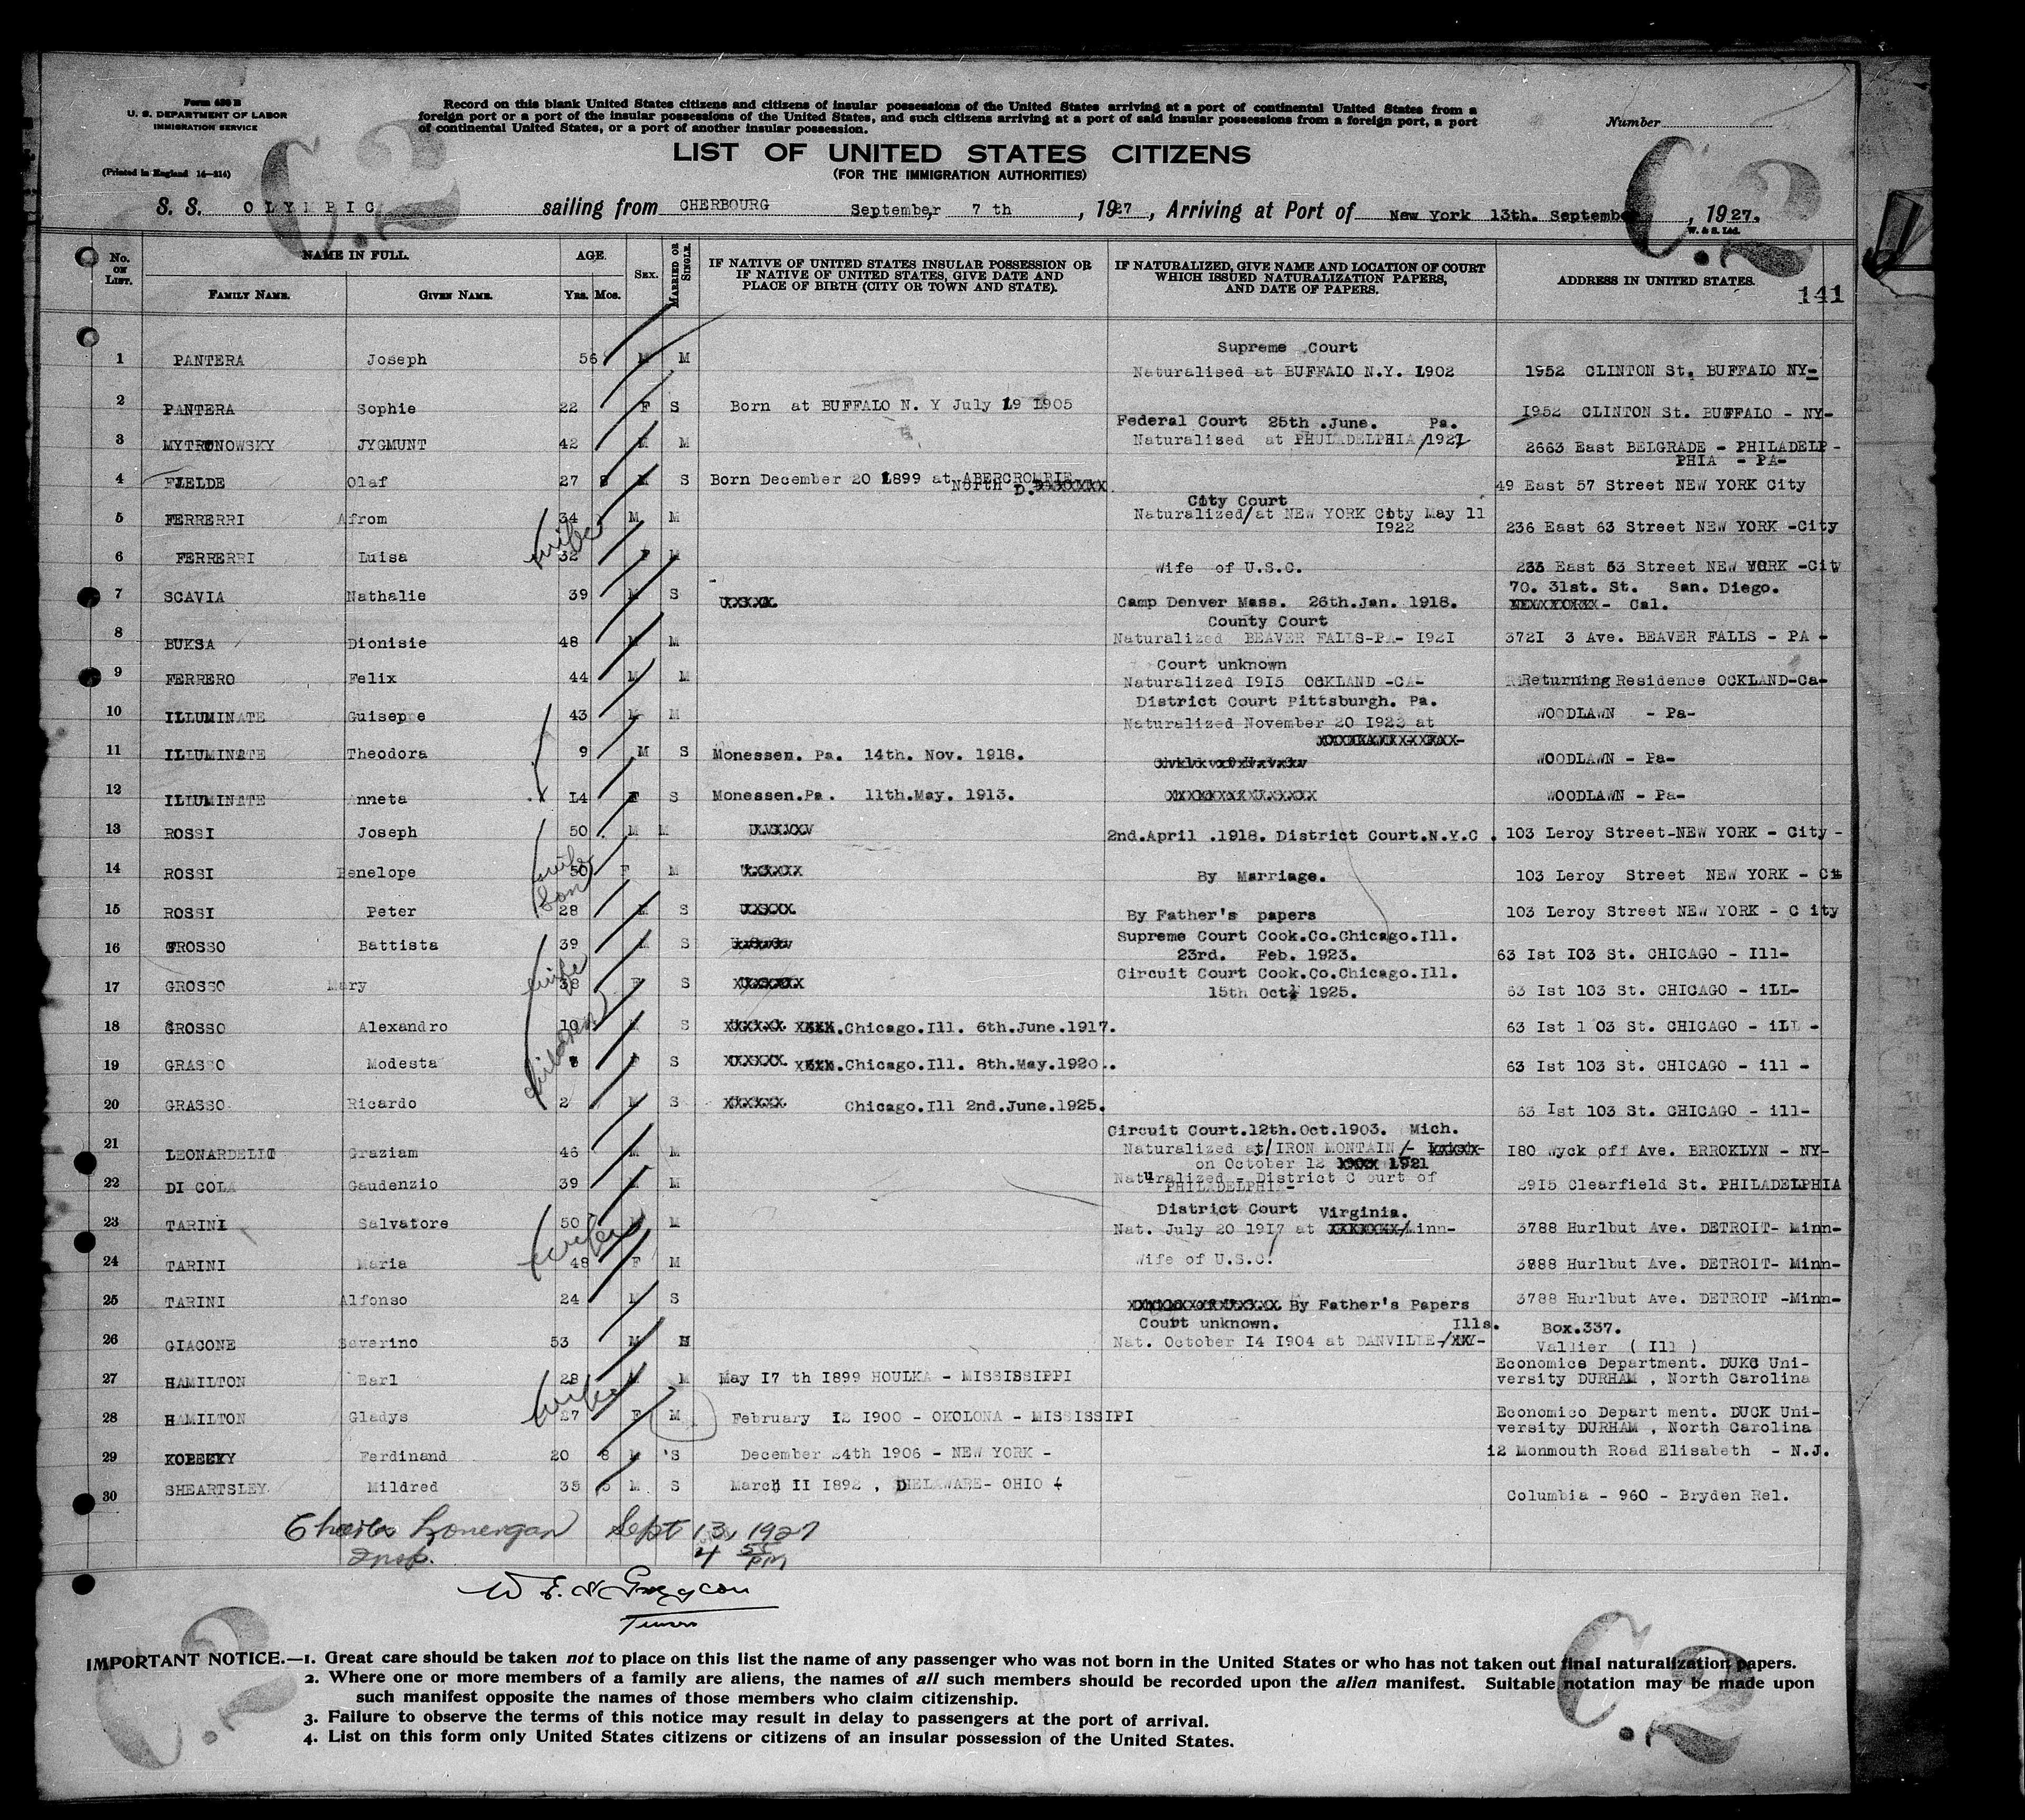 Form 630 B
U. S. DEPARTMENT OF LABOR
IMMIGRATION SERVICE
(Printed in England 14—214)
Record on this blank United States citizens and citizens of insular possessions of the United States arriving at a port of continental United States from a
foreign port or a port of the insular possessions of the United States, and such citizens arriving at a port of said insular possessions from a foreign port, a port
of continental United States, or a port of another insular possession.
Number
C.2 C.2
LIST OF UNITED STATES CITIZENS
(FOR THE IMMIGRATION AUTHORITIES)
S. S. OLYMPIC sailing from CHERBOURG September, 7 th , 1927 , Arriving at Port of New York 13th. September , 1927.
W. & S. Ltd.
No. ON LIST. NAME IN FULL. FAMILY NAME. GIVEN NAME. AGE. YRS. MOS. SEX. MARRIED OR SINGLE.
IF NATIVE OF UNITED STATES INSULAR POSSESSION OR
IF NATIVE OF UNITED STATES, GIVE DATE AND
PLACE OF BIRTH (CITY OR TOWN AND STATE).
IF NATURALIZED, GIVE NAME AND LOCATION OF COURT
WHICH ISSUED NATURALIZATION PAPERS,
AND DATE OF PAPERS.
ADDRESS IN UNITED STATES.
141
1 PANTERA Joseph 56 M M Supreme Court
Naturalised at BUFFALO N.Y. 1902 1952 CLINTON St. BUFFALO NY-
2 PANTERA Sophie 22 F S Born at BUFFALO N. Y July 19 1905 1952 CLINTON St. BUFFALO - NY-
Federal Court 25th .June. Pa.
3 MYTRONOWSKY JYGMUNT 42 M M Naturalised at PHILADELPHIA /1921 2663 East BELGRADE - PHILADELP -
PHIA - PA-
4 FJELDE Olaf 27 8 M S Born December 20 1899 at ABERCROMBIE
North D. 49 East 57 Street NEW YORK City
City Court
5 FERRERRI Afrom 34 M M Naturalized/at NEW YORK City May 11
1922 236 East 63 Street NEW YORK -City
wife
6 FERRERRI Luisa 32 F M Wife of U.S.C. 236 East 63 Street NEW YORK -City
7 SCAVIA Nathalie 39 M S Camp Denver Mass. 26th.Jan. 1918. 70. 31st. St. San. Diego.
- Cal.
County Court
8 BUKSA Dionisie 48 M M Naturalized BEAVER FALLS-PA- I92I 372I 3 Ave. BEAVER FALLS - PA -
Court unknown
9 FERRERO Felix 44 M M Naturalized I9I5 OCKLAND -CA- Returning Residence OCKLAND-Ca-
District Court Pittsburgh. Pa.
10 ILLUMINATE Guiseppe 43 M M Naturalized November 20 I922 at WOODLAWN - Pa-
11 ILLUMINATE Theodora 9 M S Monessen. Pa. 14th. Nov. 1918. WOODLAWN - Pa-
12 ILLUMINETE Anneta I4 F S Monessen.Pa. 11th.May. 1913. WOODLAWN - Pa-
13 ROSSI Joseph 50 M M 2nd.April .1918. District Court.N.Y.C . 103 Leroy Street-NEW YORK - City -
wife
14 ROSSI Penelope 50 F M By Marriage. 103 Leroy Street NEW YORK - Cit
Son
15 ROSSI Peter 28 M S By Father's papers 103 Leroy Street NEW YORK - C ity
16 GROSSO Battista 39 M S Supreme Court Cook.Co.Chicago.Ill.
23rd. Feb. 1923. 63 Ist I03 St. CHICAGO - Ill-
wife
17 GROSSO Mary 38 F S Circuit Court Cook.Co.Chicago.Ill.
15th Oct. 1925. 63 Ist 103 St. CHICAGO - iLL-
children
18 GROSSO Alexandro 10 M S Chicago.Ill. 6th.June.1917. 63 Ist 1 03 St. CHICAGO - iLL -
19 GRASSO Modesta F S Chicago.Ill. 8th.May.1920.. 63 Ist 103 St. CHICAGO - ill -
20 GRASSO Ricardo 2 M S Chicago.Ill 2nd.June.1925. 63 Ist 103 St. CHICAGO - ill-
Circuit Court.12th.Oct.1903. Mich.
21 LEONARDELII Graziam 46 M M Naturalized at/IRON MONTAIN/-
on October 12 1921 I80 Wyck off Ave. BRROKLYN - NY-
22 DI COLA Gaudenzio 39 M M Naturalized - District C ourt of
PHILADELPHIA- 29I5 Clearfield St. PHILADELPHIA
District Court Virginia.
23 TARINI Salvatore 50 M M Nat. July 20 19I7 at /Minn- 3788 Hurlbut Ave. DETROIT- Minn-
wife
24 TARINI Maria 48 F M Wife of U.S.C. 3788 Hurlbut Ave. DETROIT- Minn-
25 TARINI Alfonso 24 M S By Father's Papers 3788 Hurlbut Ave. DETROIT -Minn-
Court unknown. Ills.
26 GIACONE Severino 53 M M Nat. October I4 I904 at DANVILLE- Box.337.
Valier ( Ill )
27 HAMILTON Earl 28 M M May I7 th I899 HOULKA - MISSISSIPPI Economics Department. DUKC Uni-
versity DURHAM , North Carolina
wife
28 HAMILTON Gladys 27 F M February I2 I900 - OKOLONA - MISSISSIPI Economico Depart ment. DUCK Uni-
versity DURHAM , North Carolina
29 KOBECKY Ferdinand 20 8 M S December 24th 1906 - NEW YORK - 12 Monmouth Road Elisabeth - N.J.
30 SHEARTSLEY Mildred 35 6 M S March II I892 , DELAWARE- OHIO Columbia - 960 - Bryden Rel.
Charles Lonergan Sept 13, 1927
Insp. 4 55 PM
IMPORTANT NOTICE.—1. Great care should be taken not to place on this list the name of any passenger who was not born in the United States or who has not taken out final naturalization papers.
2. Where one or more members of a family are aliens, the names of all such members should be recorded upon the alien manifest. Suitable notation may be made upon
such manifest opposite the names of those members who claim citizenship.
3. Failure to observe the terms of this notice may result in delay to passengers at the port of arrival.
4. List on this form only United States citizens or citizens of an insular possession of the United States.
C.2 C.2